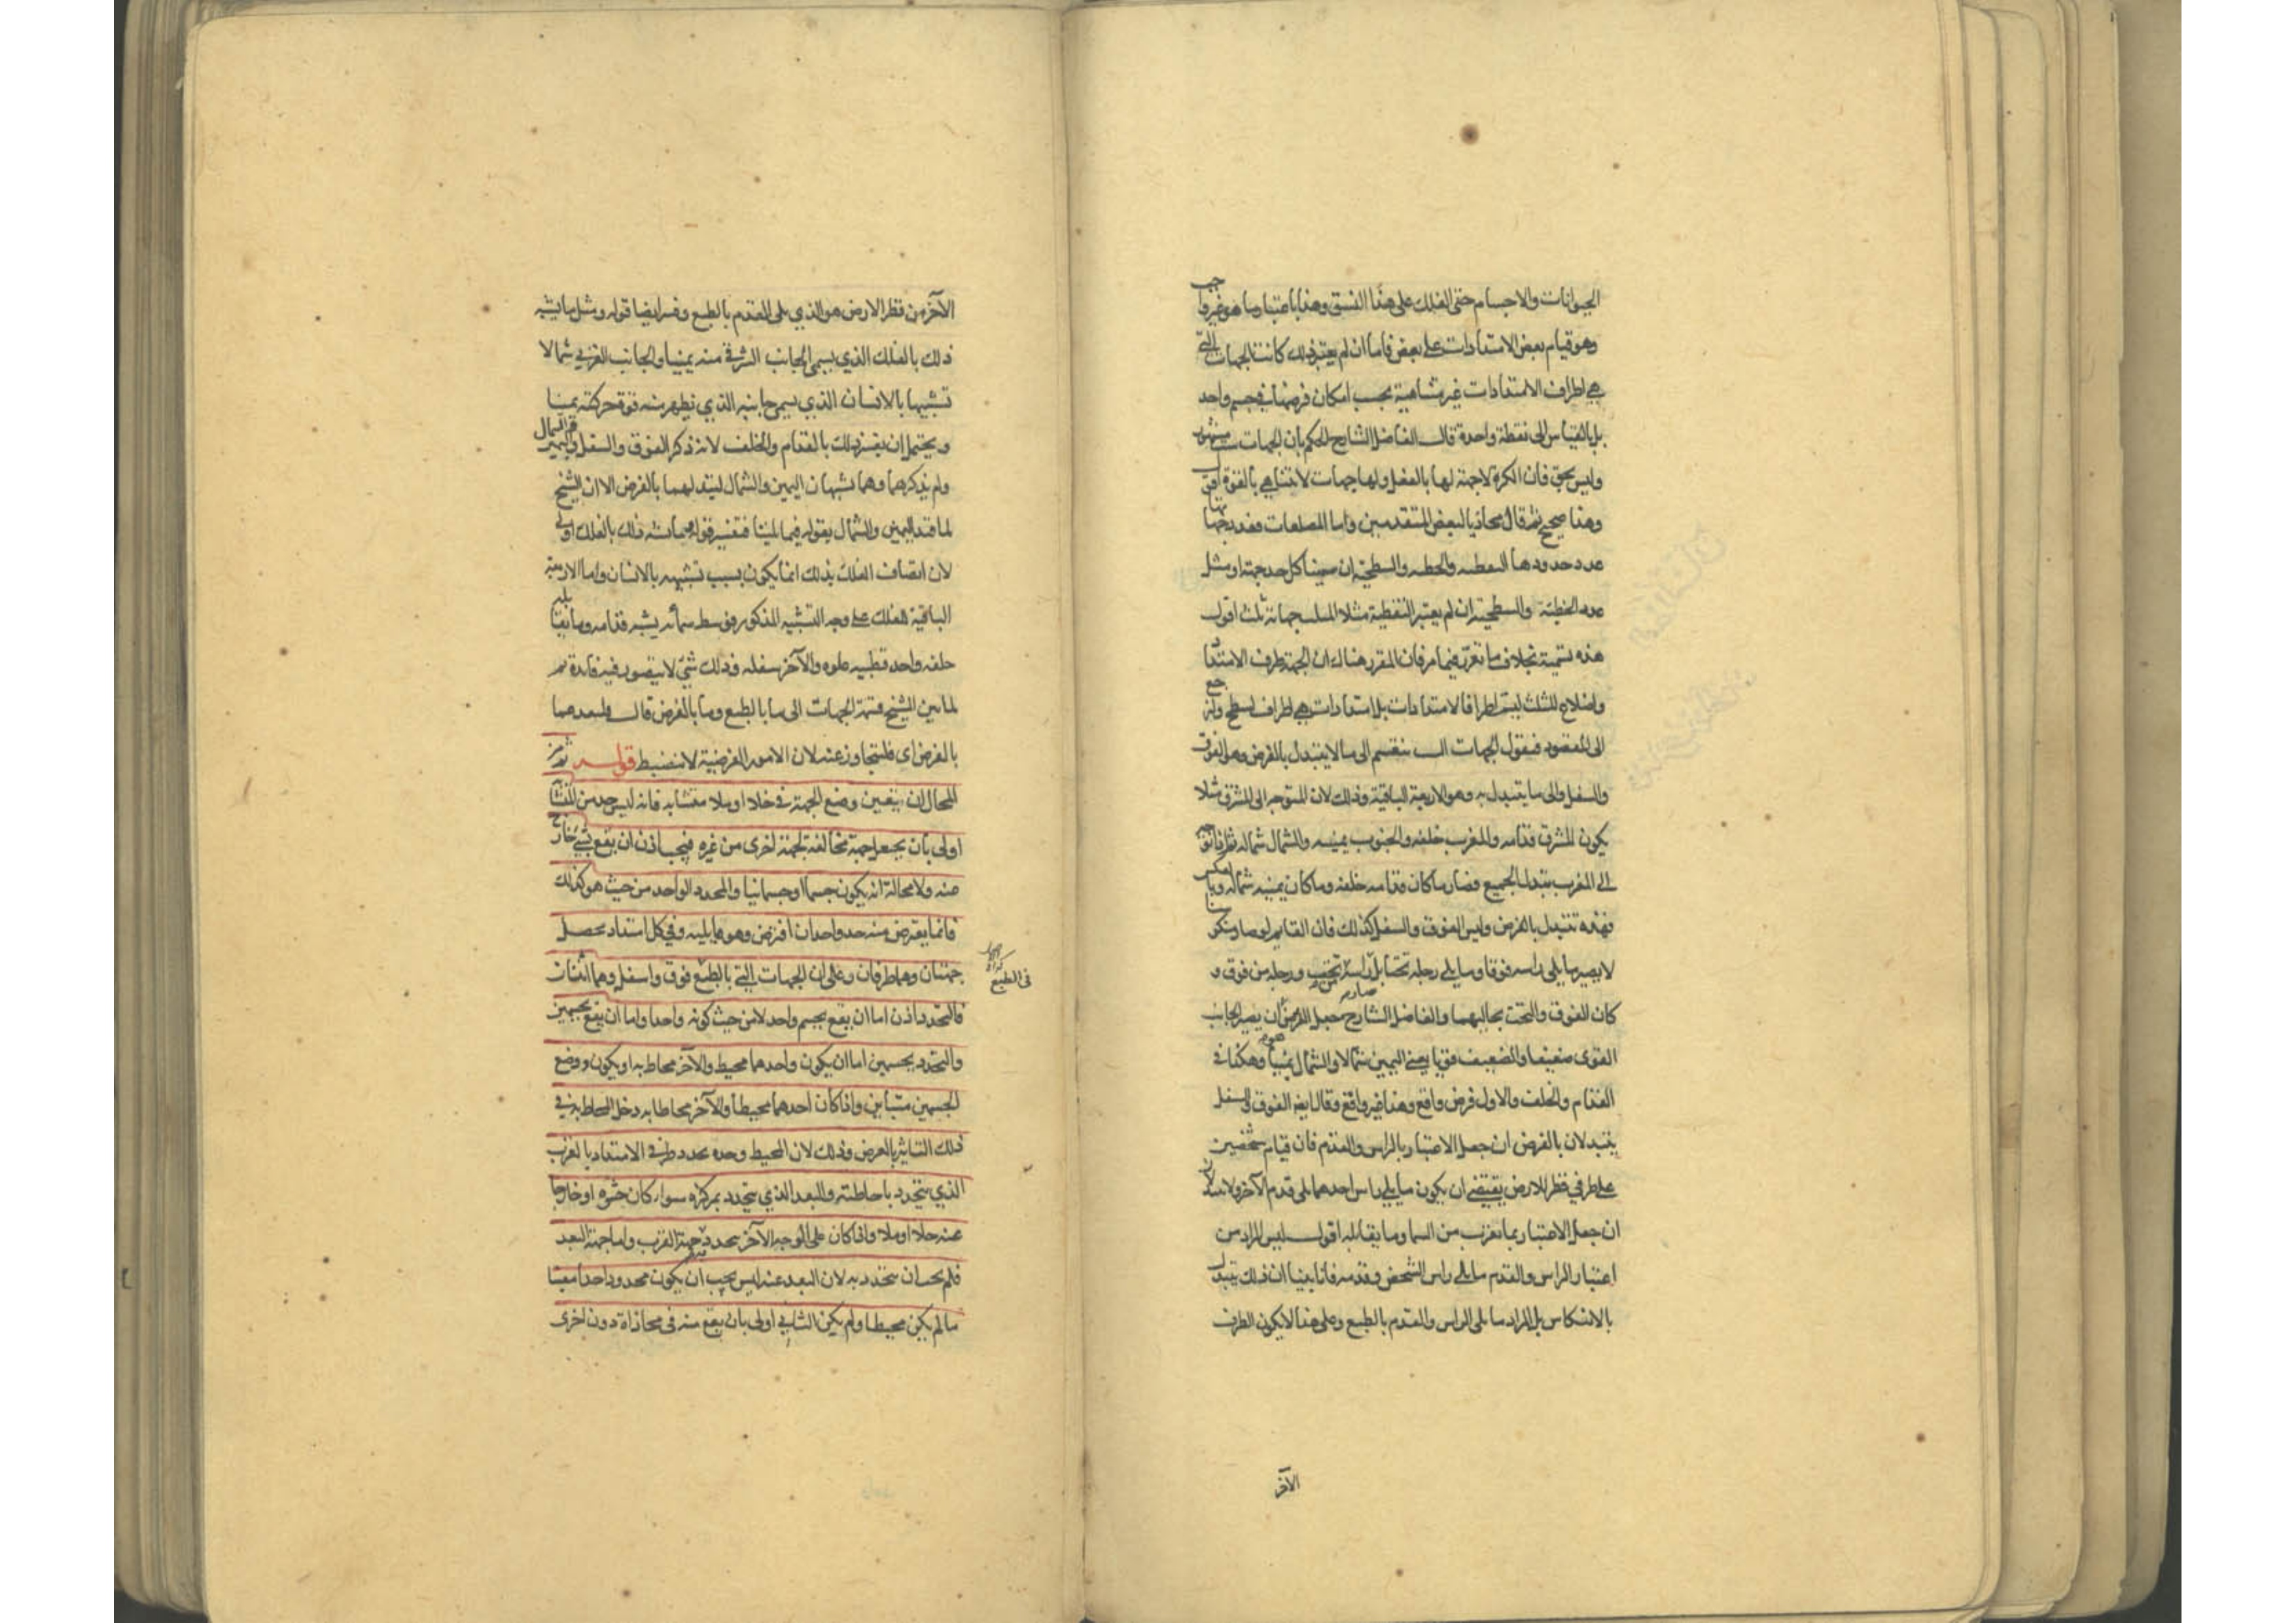 الحيوانات والاجسام حتى الفلك على هذا النسق وهذا باعتبار ما هو غير واجب
وهو قيام بعض الامتدادات على بعض فاما ان لم يعتبر ذلك كانت الجهات التي
هي اطراف الامتدادات غير متناهية بحسب امكان فرضها في جسم واحد
بل بالقياس الى نقطة واحدة قال الفاضل الشارح الحكم بان الجهات ست مشهور
وليس بحق فان الكرة لا جهة لها بالفعل ولها جهات لا تتناهى بالقوة اقول
وهذا صحيح ثم قال محاذيا لبعض المتقدمين واما المضلعات فعدد جهاتها
عدد حدودها النقطية والخطية والسطحية ان سمينا كل حد جهة او مثل
عدد الخطية والسطحية ان لم يعتبر النقطية مثلا المثلث جهاته ثلث اقول
هذه تسمية بخلاف ما تقرر فيما مر فان المقرر هناك ان الجهة طرف الامتداد
واضلاع المثلث ليست اطرافا لامتدادات بل امتدادات هي اطراف لسطح ولنرجع
الى المقصود فنقول الجهات الست تنقسم الى ما لا يتبدل بالفرض وهو الفوق
والسفل والى ما يتبدل به وهو الاربعة الباقية وذلك لان المتوجه الى المشرق مثلا
يكون المشرق قدامه والمغرب خلفه والجنوب يمينه والشمال شماله ثم اذا توجه
الى المغرب تبدل الجميع فصار ما كان قدامه خلفه وما كان يمينه شماله وبالعكس
فهذه تتبدل بالفرض وليس الفوق والسفل كذلك فان القايم لو صار منكوسا
لا يصير ما يلى راسه فوقا وما يلى رجله تحتا بل صار راسه من تحت ورجله من فوق و
كان الفوق والتحت بحاليهما والفاضل الشارح جعل الفرض ان يصير الجانب
القوى ضعيفا والضعيف قويا يعنى اليمين شمالا والشمال يمينا وهكذا في
القدام والخلف والاول فرض واقع وهذا غير واقع وقال ايضا الفوق والسفل
يتبدلان بالفرض ان جعل الاعتبار بالراس والقدم فان قيام شخصين
على طرفي قطر الارض يقتضى ان يكون ما يلى راس احدهما يلى قدم الآخر ولا يتبدلان
ان جعل الاعتبار بما يقرب من السما وما يقابله اقول ليس المراد من
اعتبار الراس والقدم ما يلى راس الشخص وقدمه فانا بينا ان ذلك يتبدل
بالانتكاس بل المراد ما يلى الراس والقدم بالطبع وعلى هذا لا يكون الطرف
الآخر
الآخر من قطر الارض هو الذي يلى القدم بالطبع وفسر ايضا قوله ومثل ما يشبه
ذلك بالفلك الذي يسمى الجانب الشرقي منه يمينا والجانب الغربي شمالا
تشبيها بالانسان الذي يسمى جانبه الذي يظهر منه قوة حركته يمينا
ويحتمل ان يفسر ذلك بالقدام والخلف لانه ذكر الفوق والسفل واليمين والشمال
ولم يذكرهما وهما يشبهان اليمين والشمال لتبدلهما بالفرض الا ان الشيخ
لما قيد اليمين والشمال بقوله فيما يلينا فتفسير قوله وما يشبه ذلك بالفلك اولى
لان اتصاف الفلك بذلك انما يكون بسبب تشبيهه بالانسان واما الاربعة
الباقية للفلك على وجه التشبيه المذكور فوسط سمائه يشبه قدامه وما يقابله
خلفه واحد قطبيه علوه والآخر سفله وذلك شيء لا يتصور فيه فايدة ثم
لما بين الشيخ قسمة الجهات الى ما بالطبع وما بالفرض قال فلنعد عما
بالفرض اى فلنتجاوز عنه لان الامور الفرضية لا تنضبط قوله ثم من
المحال ان يتعين وضع الجهة في خلا او ملا متشابه فانه ليس حد من المتشابه
اولى بان يجعل جهة مخالفة لجهة اخرى من غيره فيجب اذن ان يقع بشيء خارج
عنه ولا محالة انه يكون جسما او جسمانيا والمحدد الواحد من حيث هو كذلك
فانما يفترض منه حد واحد ان افترض وهو ما يليه وفي كل امتداد يحصل
جهتان وهما طرفان وعلى ان الجهات التي بالطبع فوق واسفل وهما اثنتان
في الطبع
فالتحدد اذن اما ان يقع بجسم واحد لا من حيث كونه واحدا واما ان يقع بجسمين
والتحدد بجسمين اما ان يكون واحدهما محيط والآخر محاط به او يكون ووضع
الجسمين متباين واذا كان احدهما محيطا والآخر محاطا به دخل المحاط به في
ذلك التاثير بالعرض وذلك لان المحيط وحده يحدد طرفي الامتداد بالقرب
الذي يتحدد باحاطته والبعد الذي يتحدد بمركزه سواء كان حشوه او خارجا
عنه خلا او ملا واذا كان على الوجه الآخر تحدد به جهة القرب واما جهة البعد
فلم يجب ان تتحدد به لان البعد عنه ليس يجب ان يكون محدودا حدا معينا
ما لم يكن محيطا ولم يكن الثاني اولى بان يقع منه في محاذاة دون اخرى